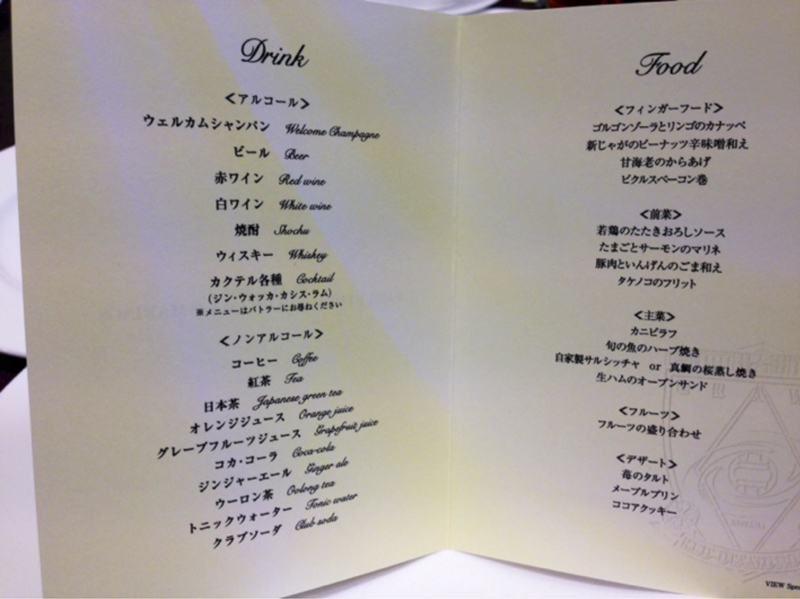 Drink
＜アルコール＞
ウェルカムシャンパン Welcome Champagne
ビール Beer
赤ワイン Red wine
白ワイン White wine
焼酎 Shochu
ウィスキー Whiskey
カクテル各種 Cocktail
（ジン・ウォッカ・カシス・ラム）
※メニューはバトラーにお尋ねください
＜ノンアルコール＞
コーヒー Coffee
紅茶 Tea
日本茶 Japanese green tea
オレンジジュース Orange juice
グレープフルーツジュース Grapefruit juice
コカ・コーラ Coca-cola
ジンジャーエール Ginger ale
ウーロン茶 Oolong tea
トニックウォーター Tonic water
クラブソーダ Club soda
Food
＜フィンガーフード＞
ゴルゴンゾーラとリンゴのカナッペ
新じゃがのピーナッツ辛味噌和え
甘海老のからあげ
ピクルスベーコン巻
＜前菜＞
若鶏のたたきおろしソース
たまごとサーモンのマリネ
豚肉といんげんのごま和え
タケノコのフリット
＜主菜＞
カニピラフ
旬の魚のハーブ焼き
自家製サルシッチャ or 真鯛の桜蒸し焼き
生ハムのオープンサンド
＜フルーツ＞
フルーツの盛り合わせ
＜デザート＞
苺のタルト
メープルプリン
ココアクッキー
VIEW